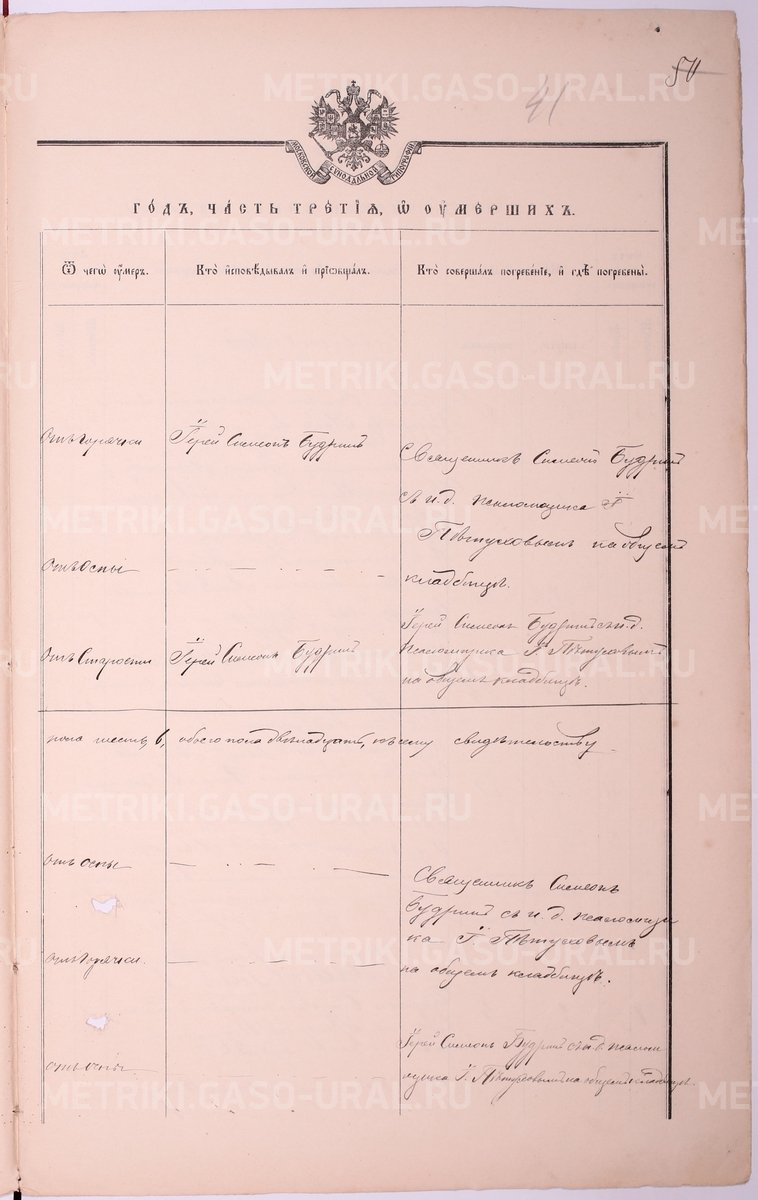 50
41
МОСКОВСКОЙ СѴНОДАЛЬНОЙ ТИПОГРАФІИ
ГОДЪ, ЧАСТЬ ТРЕТІЯ, Ѡ ОУМЕРШИХЪ.
Ѿ чегѡ оумеръ.
Кто исповѣдывалъ и пріобщалъ.
Кто совершалъ погребеніе, и гдѣ погребены.
Отъ горячки
Іерей Симеонъ Будринъ
Священникъ Симеонъ Будринъ
съ и. д. псаломщика І.
Пѣтуховымъ на общемъ
кладбищѣ.
Отъ Оспы
Отъ Старости
Іерей Симеонъ Будринъ
Іерей Симеонъ Будринъ съ и. д.
псаломщика І. Пѣтуховымъ
на общемъ кладбищѣ.
пола шесть, 6, обоего пола двѣнадцать, къ сему свидѣтельству
отъ оспы
Священникъ Симеонъ
Будринъ съ и. д. псаломщи
ка І. Пѣтуховымъ
на общемъ кладбищѣ.
отъ горячки.
отъ оспы
Іерей Симеонъ Будринъ съ и. д. псалом
щика І. Пѣтуховымъ на общемъ кладбищѣ.
METRIKI.GASO-URAL.RU